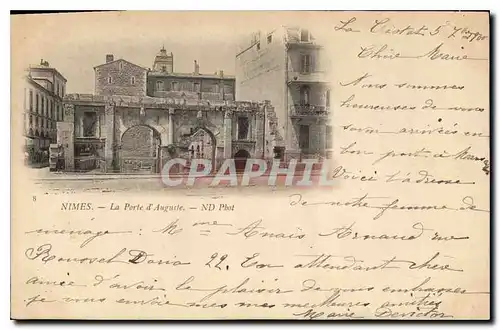 La Ciotat 5 7bre 1900
Chère Marie
Nous sommes
heureuses de vous
savoir arrivés en
bon port à
Voici l'adresse
de notre femme de
ménage : Mme Anaïs Arnaud rue
Roussel Doria 22. En attendant chère
amie d'avoir le plaisir de vous embrasser
je vous envoie mes meilleures amitiés
Marie
8
NIMES. — La Porte d'Auguste. — ND Phot
CPARAMA